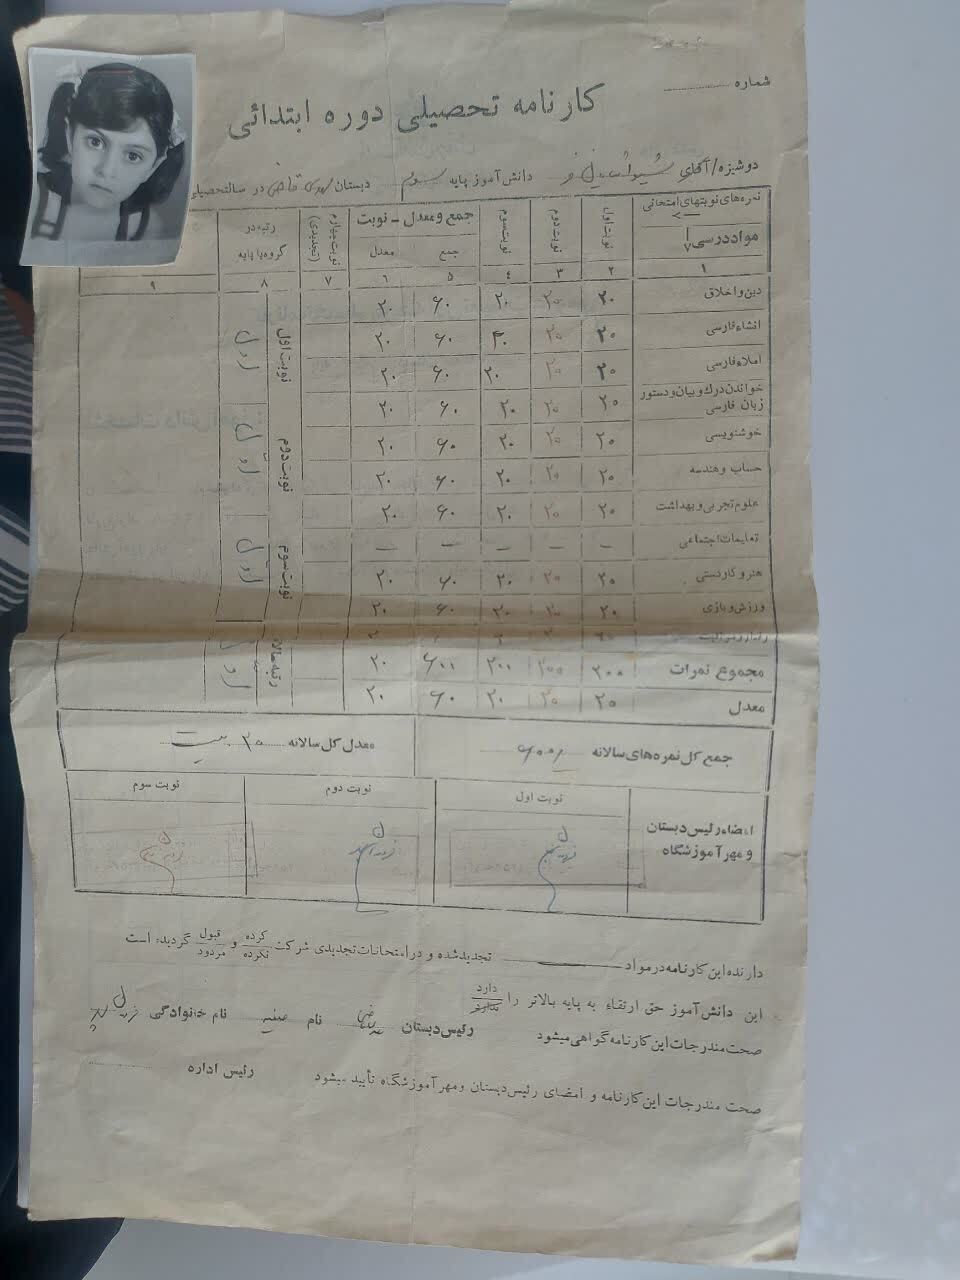 شماره
کارنامه تحصیلی دوره ابتدائی
دوشیزه/آقای دانش آموز پایه سوم دبستان در سالتحصیلی
نمره‌های نوبتهای امتحانی
مواد درسی
نوبت اول
نوبت دوم
نوبت سوم
جمع و معدل - نوبت
جمع
معدل
نوبت چهارم (تجدیدی)
رتبه در گروه یا پایه
۱ ۲ ۳ ۴ ۵ ۶ ۷ ۸ ۹
دین و اخلاق ۲۰ ۲۰ ۲۰ ۶۰ ۲۰
انشاء فارسی ۲۰ ۲۰ ۲۰ ۶۰ ۲۰
املاء فارسی ۲۰ ۲۰ ۲۰ ۶۰ ۲۰
خواندن درک و بیان و دستور زبان فارسی ۲۰ ۲۰ ۲۰ ۶۰ ۲۰
خوشنویسی ۲۰ ۲۰ ۲۰ ۶۰ ۲۰
حساب و هندسه ۲۰ ۲۰ ۲۰ ۶۰ ۲۰
علوم تجربی و بهداشت ۲۰ ۲۰ ۲۰ ۶۰ ۲۰
تعلیمات اجتماعی - - - - -
هنر و کاردستی ۲۰ ۲۰ ۲۰ ۶۰ ۲۰
ورزش و بازی ۲۰ ۲۰ ۲۰ ۶۰ ۲۰
مجموع نمرات ۲۰۰ ۲۰۰ ۲۰۰ ۶۰۰ ۲۰
معدل ۲۰ ۲۰ ۲۰ ۶۰ ۲۰
نوبت اول اول
نوبت دوم اول
نوبت سوم اول
رتبه سالانه اول
جمع کل نمره‌های سالانه ۶۰۰
معدل کل سالانه ۲۰ بیست
امضاء رئیس دبستان و مهر آموزشگاه
نوبت اول
نوبت دوم
نوبت سوم
دارنده این کارنامه در مواد تجدید شده و در امتحانات تجدیدی شرکت کرده نکرده و قبول مردود گردیده است
این دانش آموز حق ارتقاء به پایه بالاتر را دارد ندارد
صحت مندرجات این کارنامه گواهی میشود رئیس دبستان نام نام خانوادگی
صحت مندرجات این کارنامه و امضای رئیس دبستان و مهر آموزشگاه تأیید میشود رئیس اداره